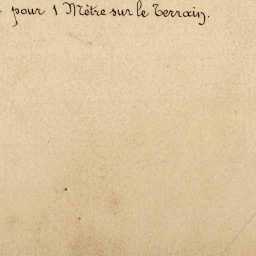 pour 1 Mètre sur le Terrain.